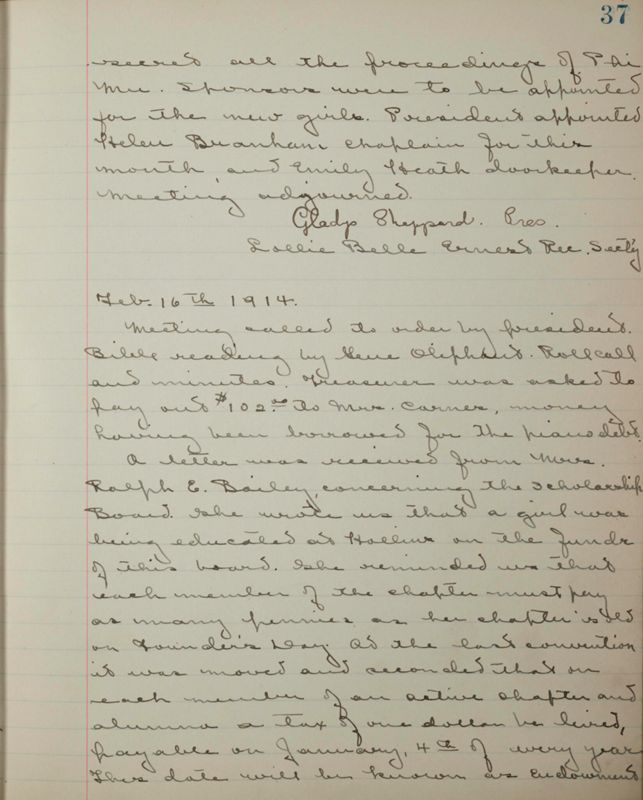 37
secret all the proceedings of Phi
Mu. Sponsors were to be appointed
for the new girls. President appointed
Helen Branham chaplain for this
month, and Emily Heath doorkeeper.
Meeting adjourned.
Gladys Sheppard. Pres.
Lollie Belle Ernest Rec. Sect'y
Feb. 16th 1914.
Meeting called to order by president.
Bible reading by Gene Oliphant. Roll call
and minutes. Treasurer was asked to
pay out $102.00 to Mrs. Carner, money
having been borrowed for the piano debt.
A letter was received from Mrs.
Ralph E. Bailey, concerning the scholarship
Board. She wrote us that a girl was
being educated at Hollins on the funds
of this board. She reminded us that
each member of the chapter must pay
as many pennies as her chapter is old
on Founder's Day. At the last convention
it was moved and seconded that on
each member of an active chapter and
alumna a tax of one dollar be lived,
payable on January, 4th of every year
This date will be known as Endowment